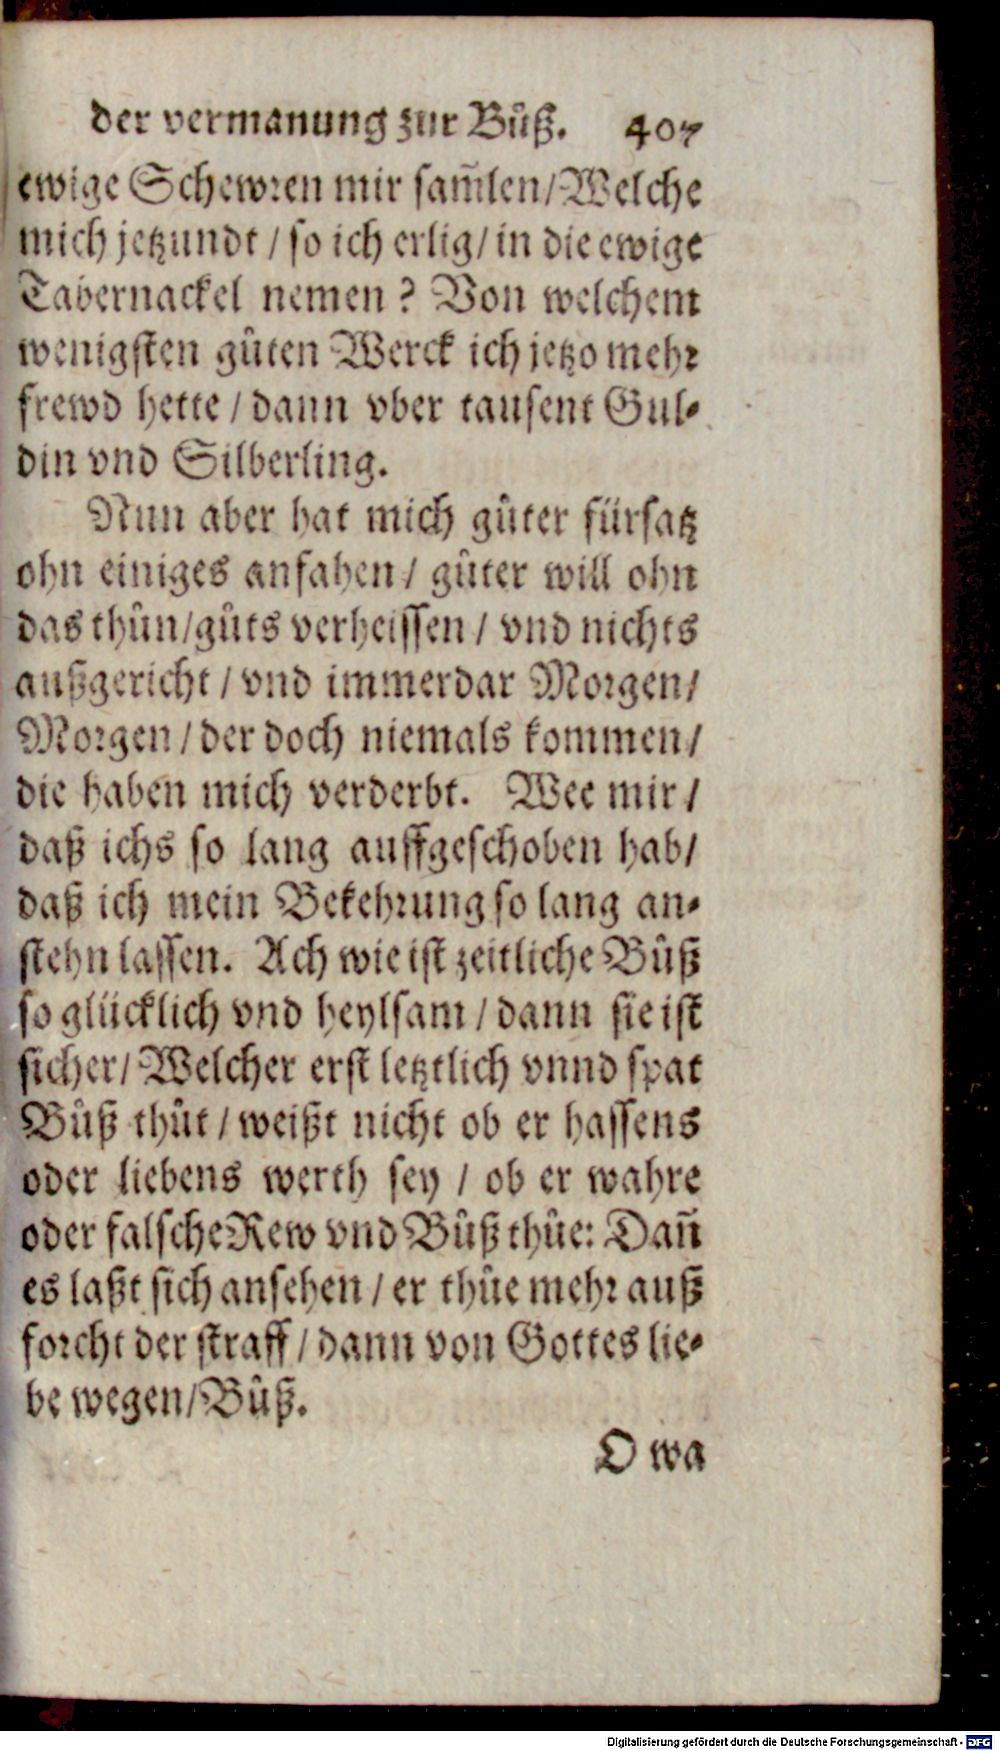 der vermanung zur Bůß. 407
ewige Schewren mir sam̃len/Welche
mich jetzundt / so ich erlig/ in die ewige
Tabernackel nemen? Von welchem
wenigsten gůten Werck ich jetzo mehr
frewd hette / dann vber tausent Gul-
din vnd Silberling.
Nun aber hat mich gůter fürsatz
ohn einiges anfahen / gůter will ohn
das thůn/gůts verheissen / vnd nichts
außgericht / vnd immerdar Morgen/
Morgen / der doch niemals kommen/
die haben mich verderbt. Wee mir/
daß ichs so lang auffgeschoben hab/
daß ich mein Bekehrung so lang an-
stehn lassen. Ach wie ist zeitliche Bůß
so glücklich vnd heylsam / dann sie ist
sicher/ Welcher erst letztlich vnnd spat
Bůß thůt / weißt nicht ob er hassens
oder liebens werth sey / ob er wahre
oder falsche Rew vnd Bůß thůe: Dañ
es laßt sich ansehen / er thůe mehr auß
forcht der straff / dann von Gottes lie-
be wegen/Bůß.
O wa
Digitalisierung gefördert durch die Deutsche Forschungsgemeinschaft - DFG